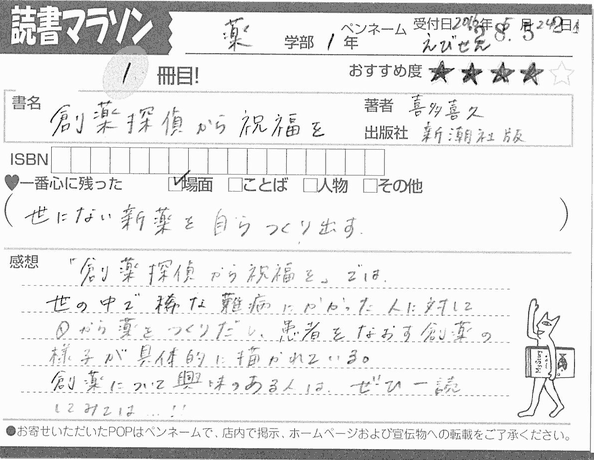 読書マラソン
薬 学部 1年
ペンネーム えびせん
受付日2016年5月24日
28.5.2
1 冊目!
おすすめ度 ★★★★☆
書名 創薬探偵から祝福を
著者 喜多喜久
出版社 新潮社版
ISBN
♥一番心に残った ☑場面 □ことば □人物 □その他
(世にない新薬を自らつくり出す.)
感想 「創薬探偵から祝福を」では、
世の中で稀な難病にかかった人に対して
0から薬をつくりだし、患者をなおす創薬の
様子が具体的に描かれている。
創薬について興味のある人は、ぜひ一読
してみては…!!
●お寄せいただいたPOPはペンネームで、店内で掲示、ホームページおよび宣伝物への転載をご了承ください。